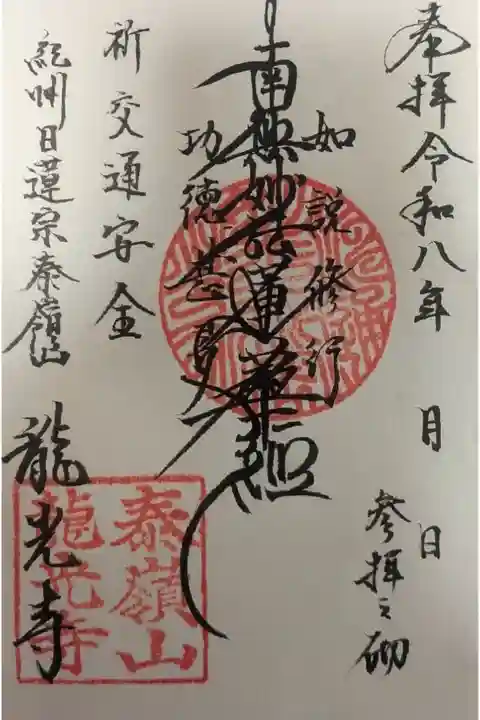 奉拝令和八年 月 日
参拝之砌
如説修行
南無妙法蓮華経
功徳甚多
祈交通安全
紀州日蓮宗泰嶺山
龍光寺
泰嶺山
龍光寺